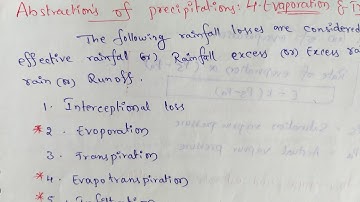 Abstractions of precipitations: 4. Evaporation &
The following rainfall losses are considered
effective rainfall (or) Rainfall excess (or) Excess
rain (or) Runoff.
1. Interceptional loss
*2. Evaporation
3. Transpiration
*4. Evapotranspiration
*5.